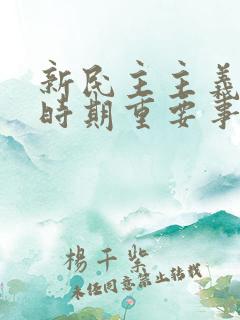 新民主主義
時期重要事
楊千紫
未經同意禁止轉載